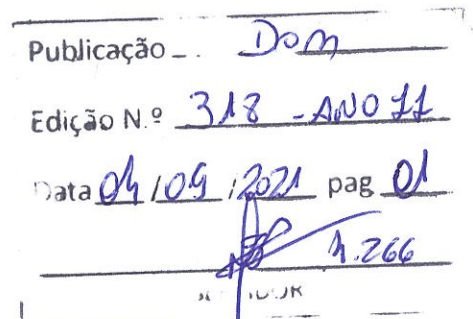 Publicação Dom
Edição N.º 318 - ANO 11
Data 04 / 09 / 2021 pag 01